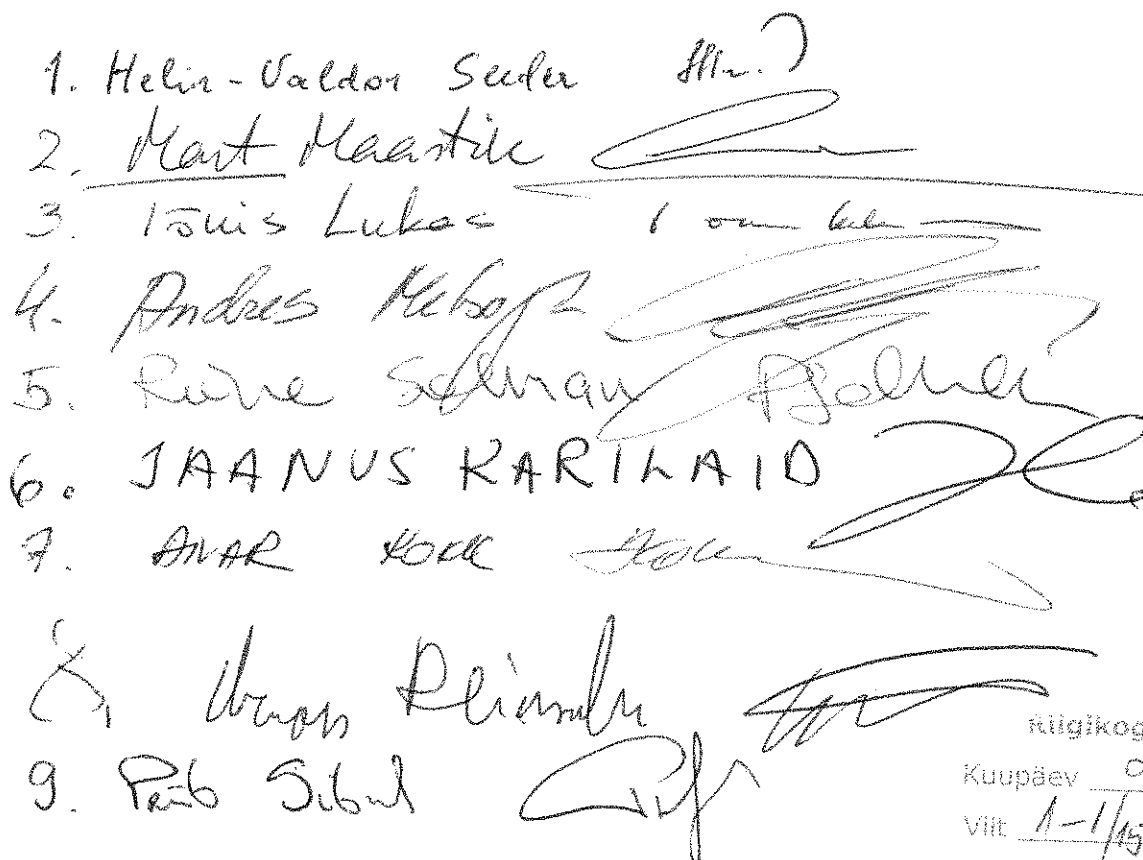 1. Helir-Valdor Seeder
2. Mart Maastik
3. Tõnis Lukas
4. Andres Metsoja
5. Riina Solman
6. JAANUS KARILAID
7. AIVAR KOKK
8. Urmas Reinsalu
9. Priit Sibul
Riigikog
Kuupäev 0
Viit 1-1/15